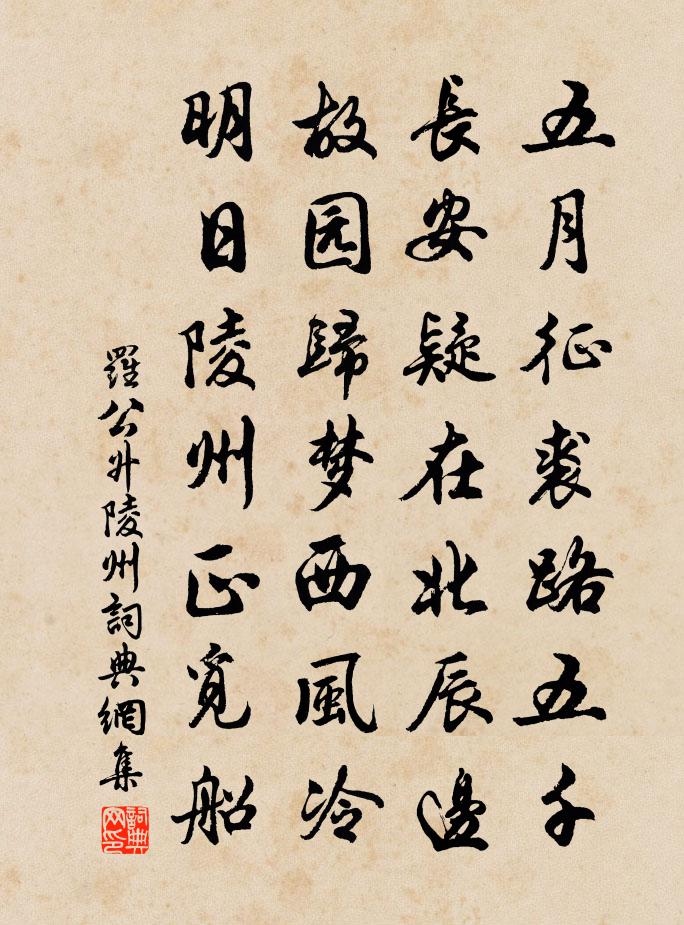 五月征裘路五千
長安疑在北辰邊
故园歸梦西風冷
明日陵州正覓船
羅公升陵州詞典網集
詞典网印